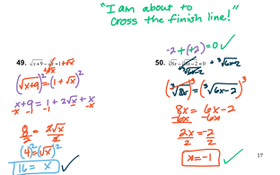 "I am about to
cross the finish line!"
49. √x+9 - √x = 1 + √x
+√x
(√x+9)² = (1+√x)²
x+9 = 1 + 2√x + x
-x -1 -1 -x
8/2 = 2√x/2
(4)² = (√x)²
16 = x ✓
-2 + (+2) = 0 ✓
50. ∛8x - ∛6x-2 = 0 + ∛6x-2
+∛6x-2
(∛8x)³ = (∛6x-2)³
8x = 6x-2
-6x -6x
2x/2 = -2/2
x = -1 ✓
17